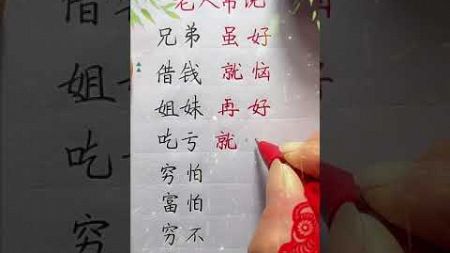 老人常说
兄弟 虽好
借钱 就恼
姐妹 再好
吃亏 就
穷怕
富怕
穷不